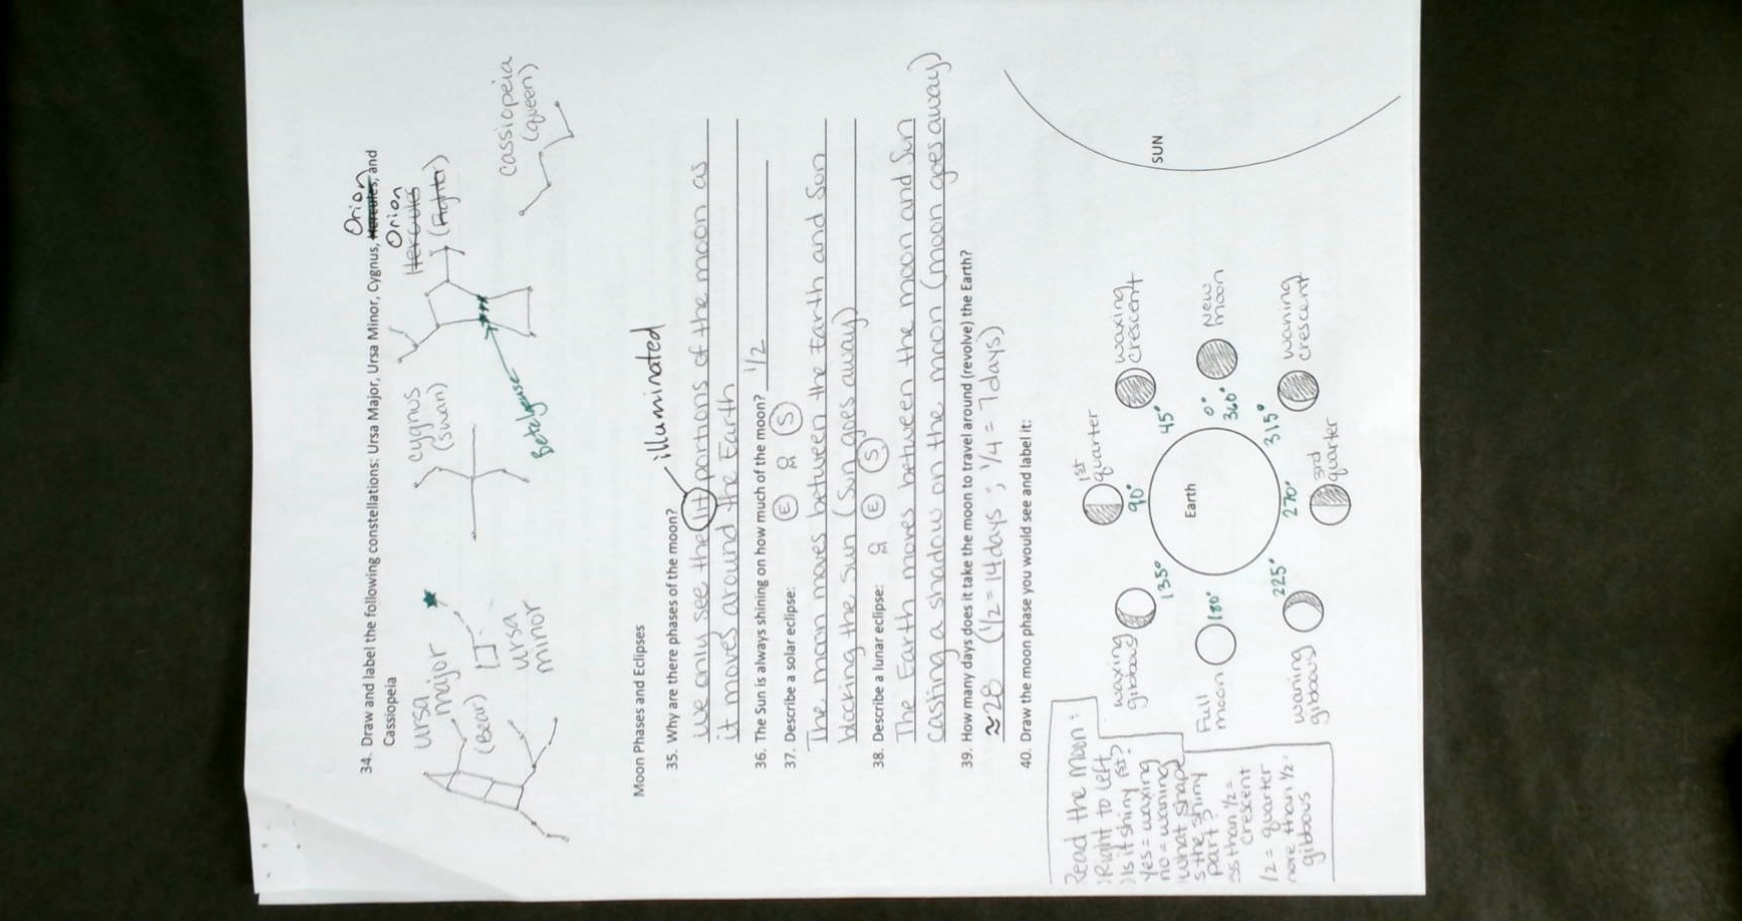 34. Draw and label the following constellations: Ursa Major, Ursa Minor, Cygnus, Hercules, and
Orion
Cassiopeia
ursa
major
(Bear)
ursa
minor
cygnus
(swan)
Orion
Hercules
(Fighter)
Betelgeuse
cassiopeia
(queen)
Moon Phases and Eclipses
35. Why are there phases of the moon?
illuminated
we only see the lit portions of the moon as
it moves around the Earth
36. The Sun is always shining on how much of the moon? 1/2
37. Describe a solar eclipse: E m S
The moon moves between the Earth and Sun
blocking the Sun (Sun goes away)
38. Describe a lunar eclipse: m E S
The Earth moves between the moon and Sun
casting a shadow on the moon (moon goes away)
39. How many days does it take the moon to travel around (revolve) the Earth?
≈28 (1/2 = 14 days ; 1/4 = 7 days)
40. Draw the moon phase you would see and label it:
Read the moon:
Right to left
Is it shiny 1st?
yes = waxing
no = waning
what shape
s the shiny
part?
ss than 1/2 =
crescent
1/2 = quarter
more than 1/2 =
gibbous
waxing
gibbous
135°
1st
quarter
90°
waxing
crescent
45°
Full
moon
180°
Earth
0°
360°
New
moon
SUN
waning
gibbous
225°
270°
3rd
quarter
315°
waning
crescent